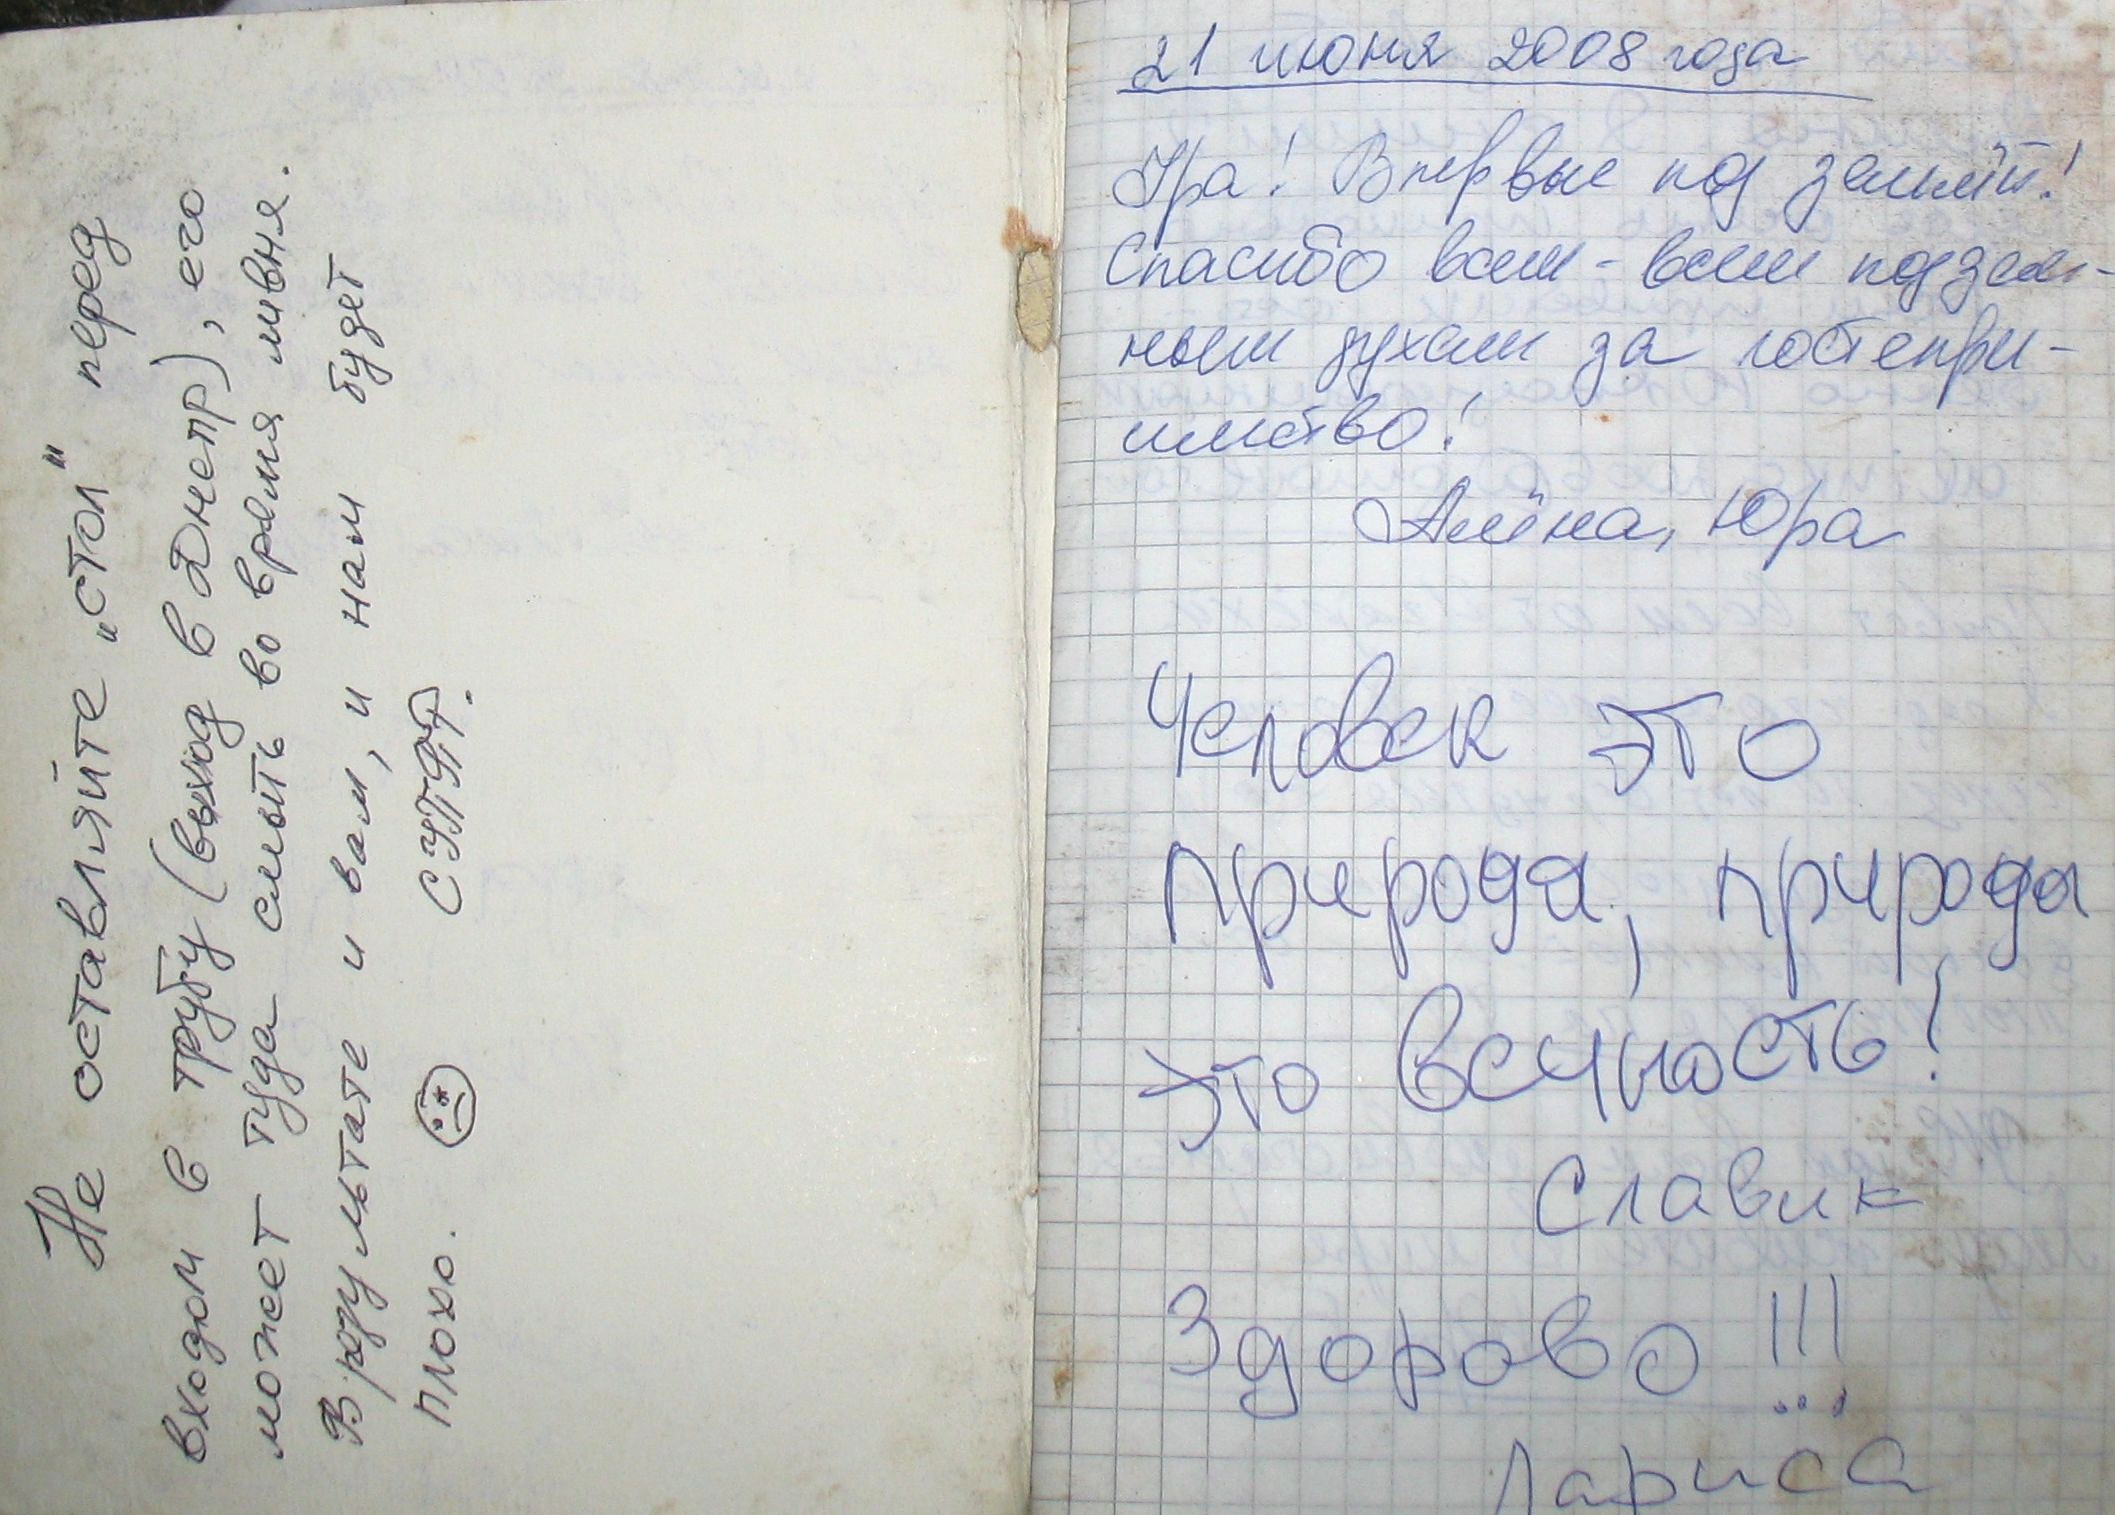 Не оставляйте „стол" перед
входом в трубу (выход в Днепр), его
может туда смыть во время ливня.
В результате и вам, и нам будет
плохо.
21 июня 2008 года
Ура! Впервые под землёй!
Спасибо всем-всем подзем-
ным духам за гостепри-
имство!
Алёна, Юра
Человек это
природа, природа
это вечность!
Славик
Здорово!!!
Лариса